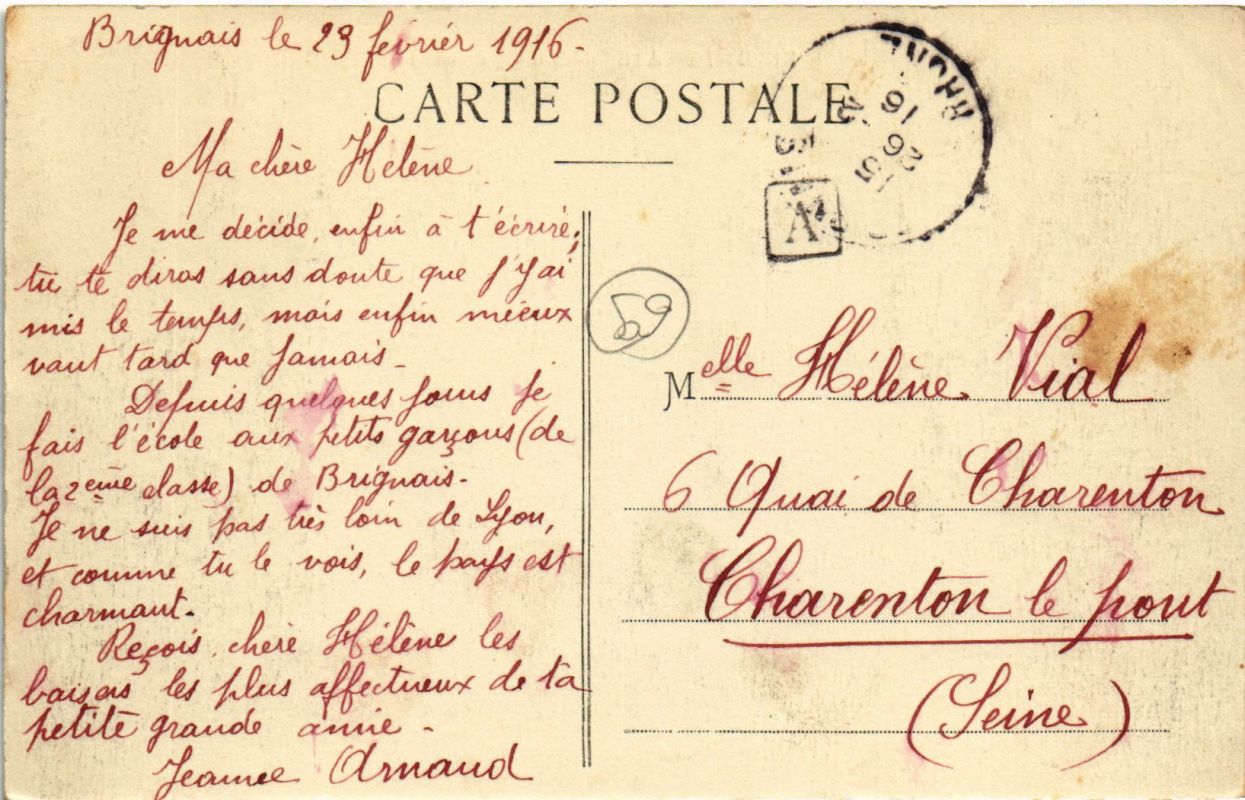 Brignais le 23 février 1916.
CARTE POSTALE
Ma chère Hélène
Je me décide, enfin à t'écrire;
tu te diras sans doute que j'y ai
mis le temps, mais enfin mieux
vaut tard que jamais.
Depuis quelques jours je
fais l'école aux petits garçons (de
la 2ème classe) de Brignais.
Je ne suis pas très loin de Lyon,
et comme tu le vois, le pays est
charmant.
Reçois, chère Hélène les
baisers les plus affectueux de ta
petite grande amie.
Jeanne Arnaud
RHONE
16
26
A
69
Melle Hélène Vial
6 Quai de Charenton
Charenton le pont
(Seine)